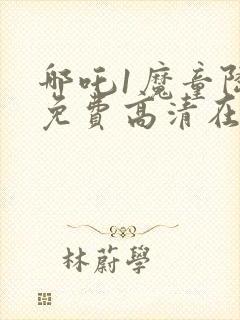 哪吒1魔童降
免費高清在
林蔚學